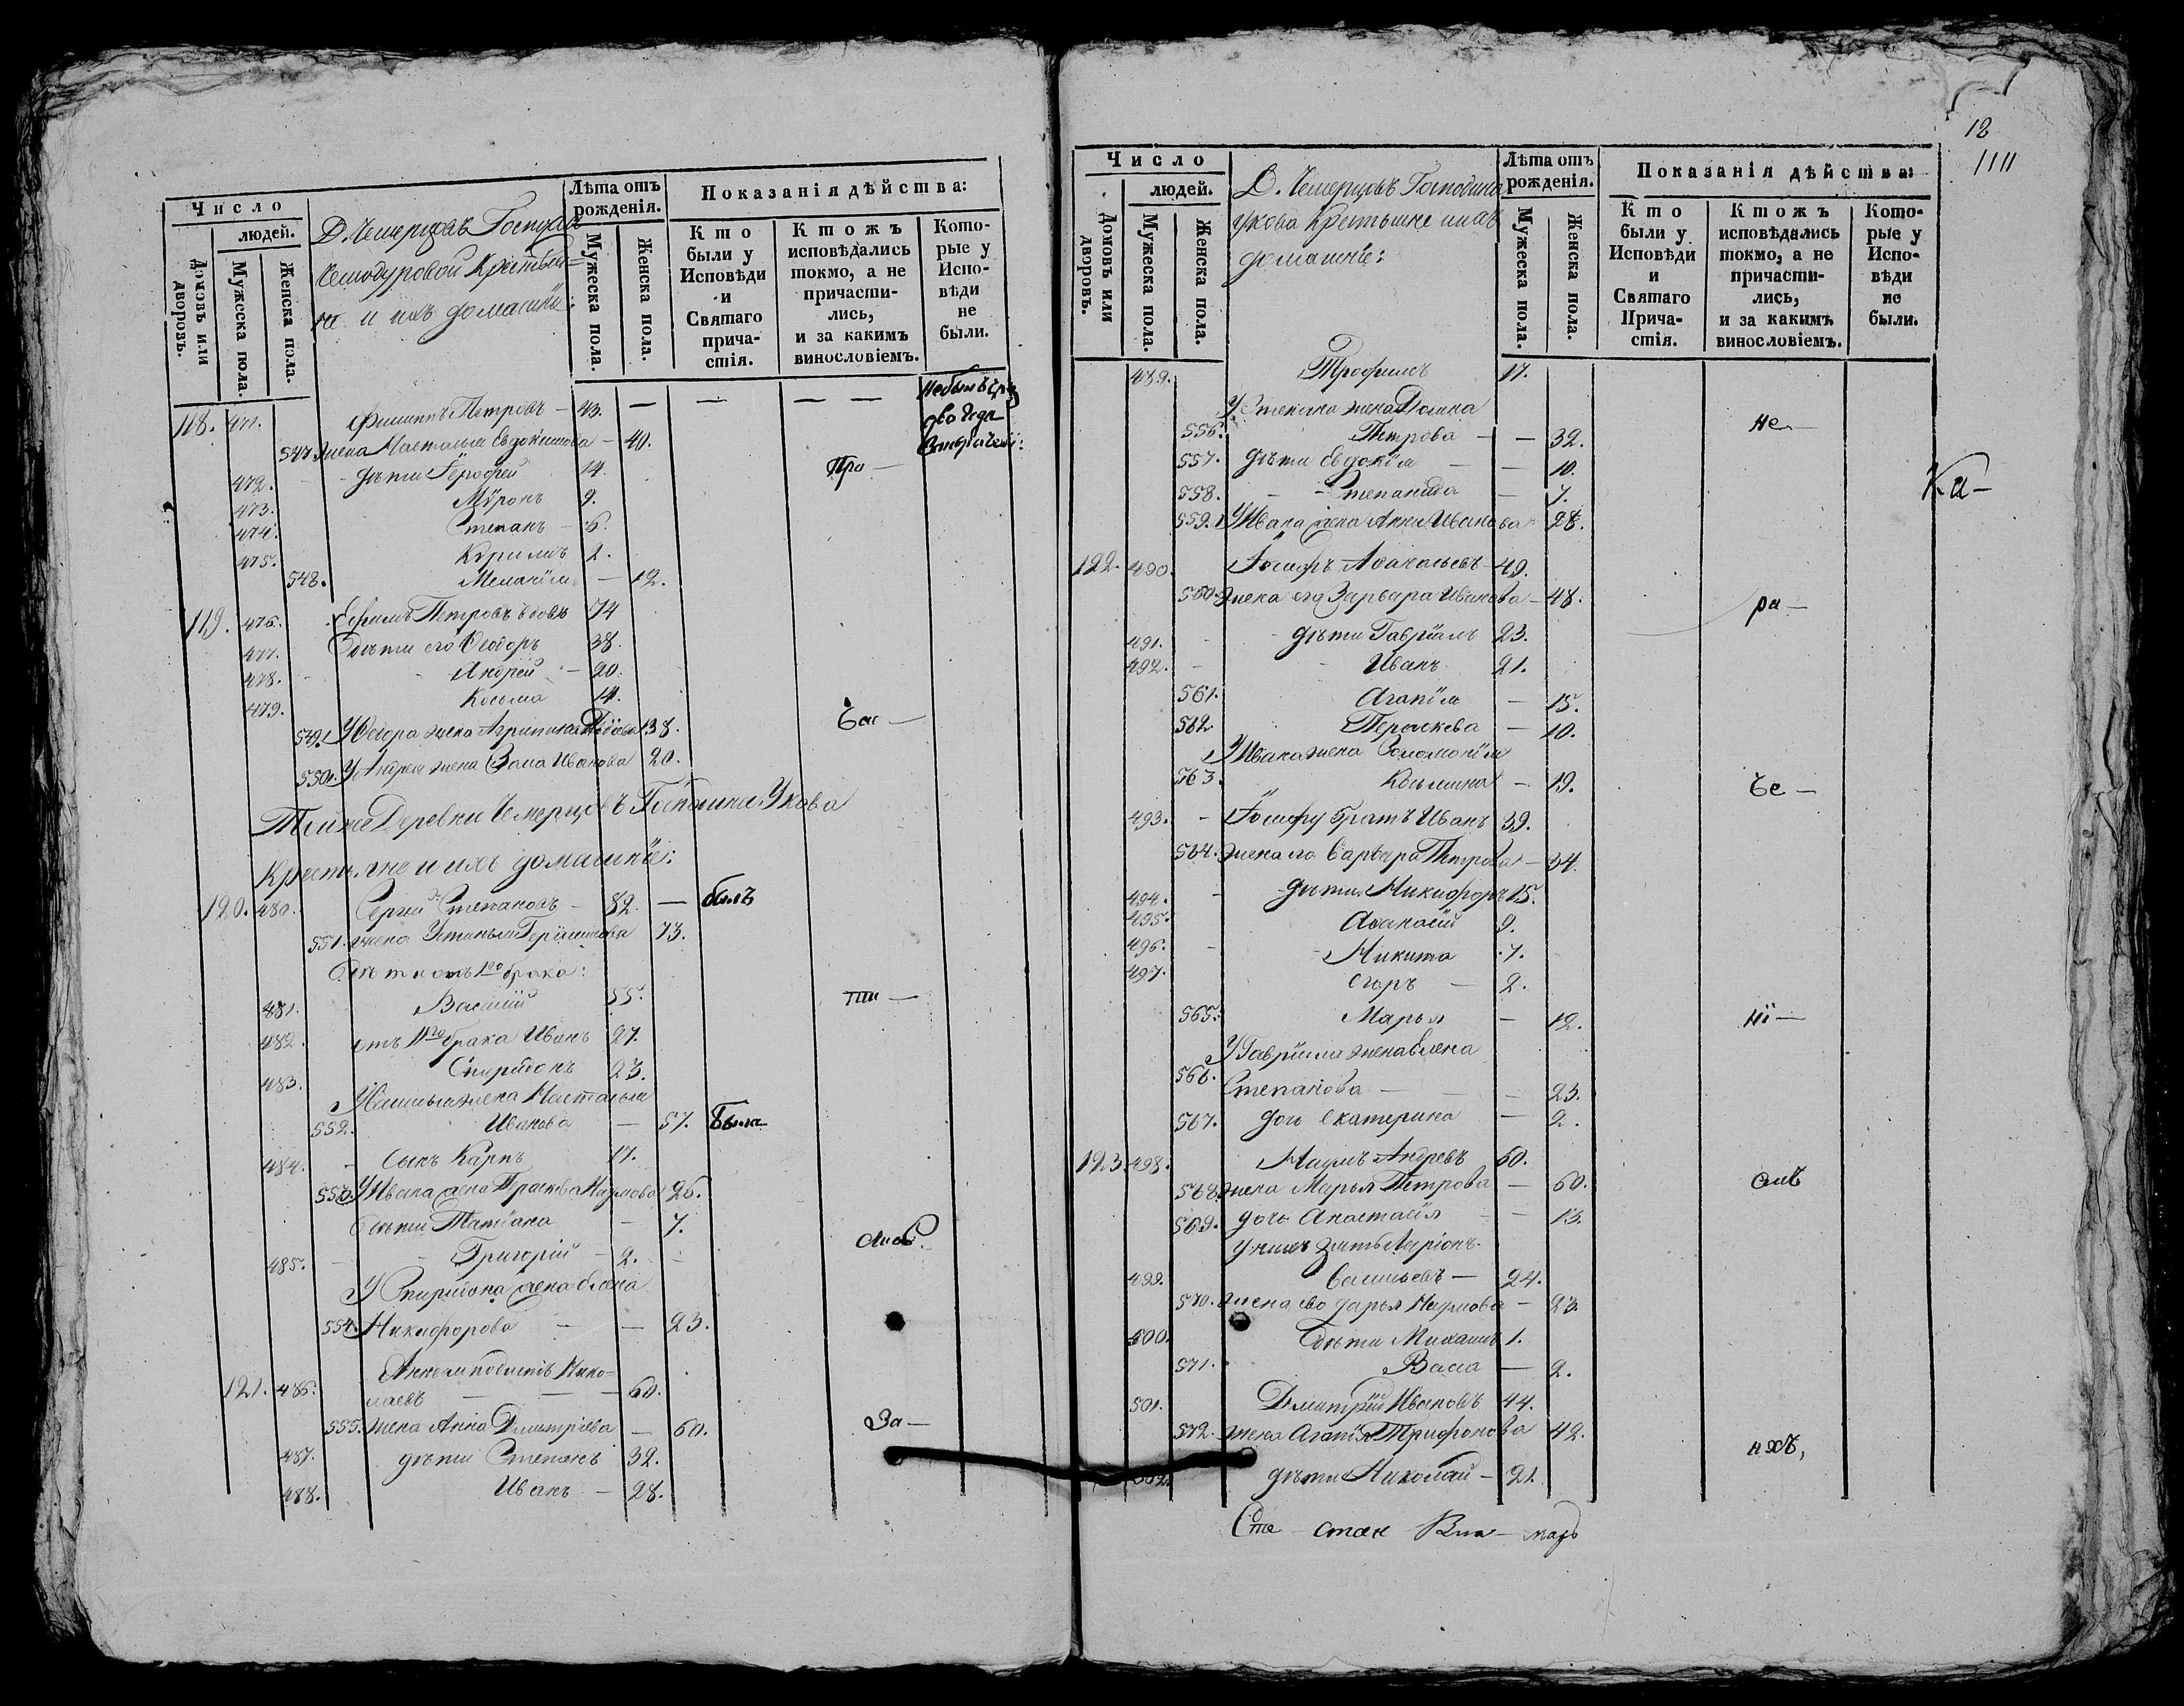 Число
людей.
Домовъ или дворовъ.
Мужеска пола.
Женска пола.
Д. Чемерцовъ Госпожи
Чемодуровой Крестьян=
не и ихъ домашніе:
Лѣта отъ рожденія.
Мужеска пола.
Женска пола.
Показанія дѣйства:
Кто были у Исповѣди и Святаго причастія.
Ктожъ исповѣдались токмо, а не причастились, и за какимъ винословіемъ.
Которые у Исповѣди не были.
118. 471. Филиппъ Петровъ — 43. — — — —
547 жена Наталья Евдокимова — 40.
472. дѣти Ерофей 14. Пра —
473. Мѵронъ 9.
474. Степанъ — 6.
475. Кѵрилъ 2.
548. Меланія — 12.
119. 476. Ефимъ Петровъ вдовъ 74
477. Дѣти его Ѳеодоръ 38.
478. Андрей — 20.
479. Косьма 14.
549. У Ѳедора жена Агрипина 38. Вас —
550. У Андрея жена Васа Иванова 20.
Тоиже Деревни Чемерцовъ Господина Укова
крестьяне и ихъ домашніе:
120. 480. Сергей Степановъ — 82. — былъ
551. жена Устинья Герасимова 73.
Дѣти отъ 1го брака:
481. Василій 55. ти —
482. отъ 2го брака Иванъ 27.
483. Спиридонъ 23.
У Василья жена Наталья
552. Иванова — 57. Была
484. — сынъ Карпъ 17.
553. У Ивана жена Прасковья Наумова 26.
Дѣти Татіана — 7.
485. — Григорій — 2.
У Спиридона жена Елена
554. Никифорова — — 23.
121. 486. Нико=
лаевъ — — — 60.
555. жена Анна Дмитріева — 60. За —
487. дѣти Степанъ 32.
488. Иванъ — 28.
12
1111
Число
людей.
Домовъ или дворовъ.
Мужеска пола.
Женска пола.
Д. Чемерцовъ Господина
Укова Крестьяне и ихъ
домашніе:
Лѣта отъ рожденія.
Мужеска пола.
Женска пола.
Показанія дѣйства:
Кто были у Исповѣди и Святаго Причастія.
Ктожъ исповѣдались токмо, а не причастились, и за какимъ винословіемъ.
Которые у Исповѣди не были.
489. Трофимъ 17.
У Степана жена Домна
556. Петрова — — 32. не —
557. дѣти Евдокія — — 10.
558. — — Степанида — 7. Ка —
559. У Ивана жена Анна Иванова 28.
122. 490. Іосифъ Аѳанасьевъ — 49.
560. жена его Варвара Иванова — 48. ра —
491. — дѣти Гавріилъ 23.
492. — Иванъ 21.
561. Агапія — 15.
562. Параскева — 10.
У Ивана жена Соломонія
563. Косьмина — 19. Ве —
493. — Іосифу братъ Иванъ 39.
564. жена его Варвара Петрова — 34.
494. — дѣти Никифоръ 15.
495. Аѳанасій 9.
496. — Никита 7.
497. Егоръ — 2.
565. Марья — 12. ні —
У Гавріила жена Елена
566. Степанова — — 23.
567. дочь Екатерина — 2.
123. 498. Наумъ Андреевъ 60.
568. жена Марья Петрова — 60.
569. дочь Анастасія — — 13.
у нихъ зять Ларіонъ
499. Васильевъ — 24.
570. жена его Дарья Наумова — 23.
500. Дѣти Михаилъ 1.
571. Васа — 2.
501. Дмитрій Ивановъ 44.
572. жена Агапія Трифонова 42. ихъ,
502. дѣти Николай — 21.